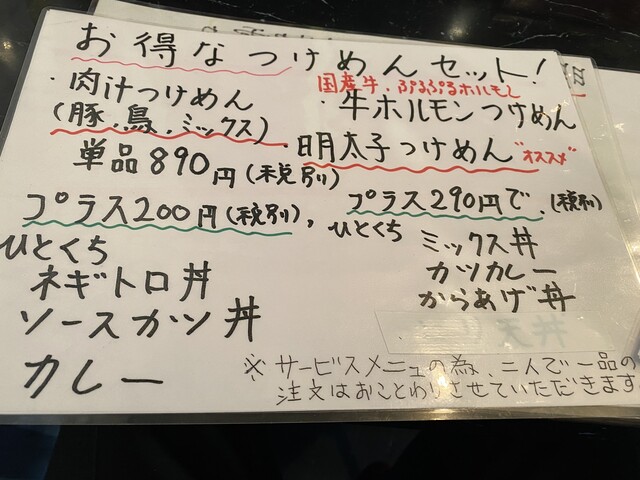 お得なつけめんセット!
・肉汁つけめん
(豚.鳥.ミックス)
国産牛、ぷるぷるホルモン
・牛ホルモンつけめん
・明太子つけめん"オススメ"
単品890円(税別)
プラス200円(税別),
ひとくち
ネギトロ丼
ソースカツ丼
カレー
プラス290円で.(税別)
ひとくち
ミックス丼
カツカレー
からあげ丼
※サービスメニュの為、二人で一品の
注文はおことわりさせていただきます